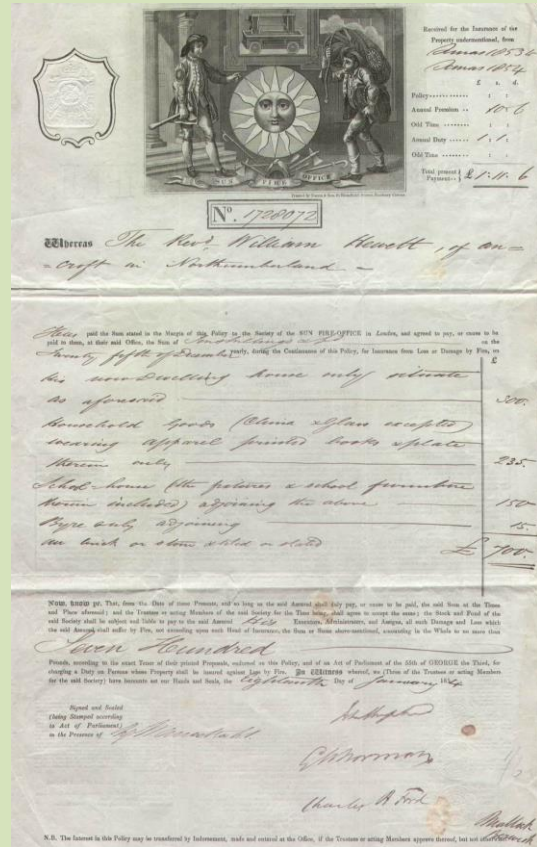 Received for the Insurance of the
Property undermentioned, from
Xmas 1853 to
Xmas 1854
£ s. d.
Policy
Annual Premium .. 10 6
Odd Time
Annual Duty 1 1
Odd Time
Total present Payment £ 1 11 6
SUN FIRE OFFICE
No. 1728072
Whereas The Revd. William Hewett, of An=
=croft in Northumberland
Have paid the Sum stated in the Margin of this Policy to the Society of the SUN FIRE-OFFICE in London, and agreed to pay, or cause to be
paid to them, at their said Office, the Sum of on the
Twenty fifth of December yearly, during the Continuance of this Policy, for Insurance from Loss or Damage by Fire, on
£
his now Dwelling house only situate
as aforesaid 300.
Household Goods (China & Glass excepted)
wearing apparel printed books & plate
therein only 235.
School-house (the fixtures & school furniture
therein included) adjoining the above 150
Byre only adjoining 15.
all brick or stone & tiled or slated £ 700.
Now, know ye, That, from the Date of these Presents, and so long as the said Assured shall duly pay, or cause to be paid, the said Sum at the Times
and Place aforesaid; and the Trustees or acting Members of the said Society for the Time being, shall agree to accept the same; the Stock and Fund of the
said Society shall be subject and liable to pay to the said Assured His Executors, Administrators, and Assigns, all such Damage and Loss which
the said Assured shall suffer by Fire, not exceeding upon each Head of Insurance, the Sum or Sums above-mentioned, amounting in the Whole to no more than
Seven Hundred
Pounds, according to the exact Tenor of their printed Proposals, endorsed on this Policy, and of an Act of Parliament of the 55th of GEORGE the Third, for
charging a Duty on Persons whose Property shall be insured against Loss by Fire. In Witness whereof, we (Three of the Trustees or acting Members
for the said Society) have hereunto set our Hands and Seals, the Eighteenth Day of January 1854
Signed and Sealed
(being Stamped according
to Act of Parliament)
in the Presence of
G W Norman
Charles A Ford
N.B. The Interest in this Policy may be transferred by Indorsement, made and entered at the Office, if the Trustees or acting Members approve thereof, but not otherwise